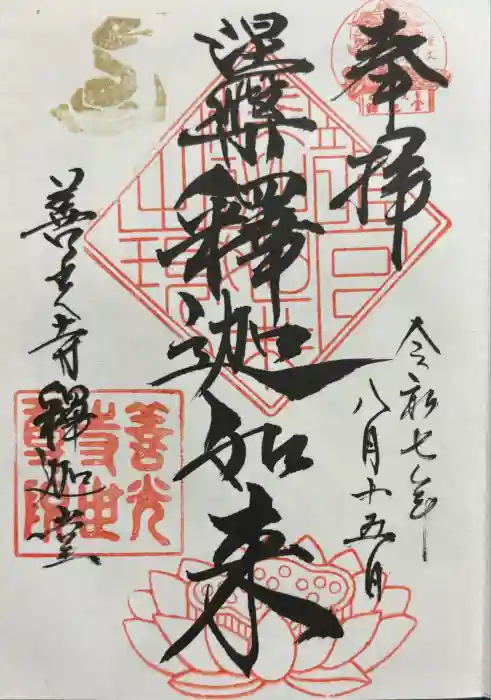 奉拝
令和七年
八月十五日
涅槃釋迦如来
善光寺釋迦堂